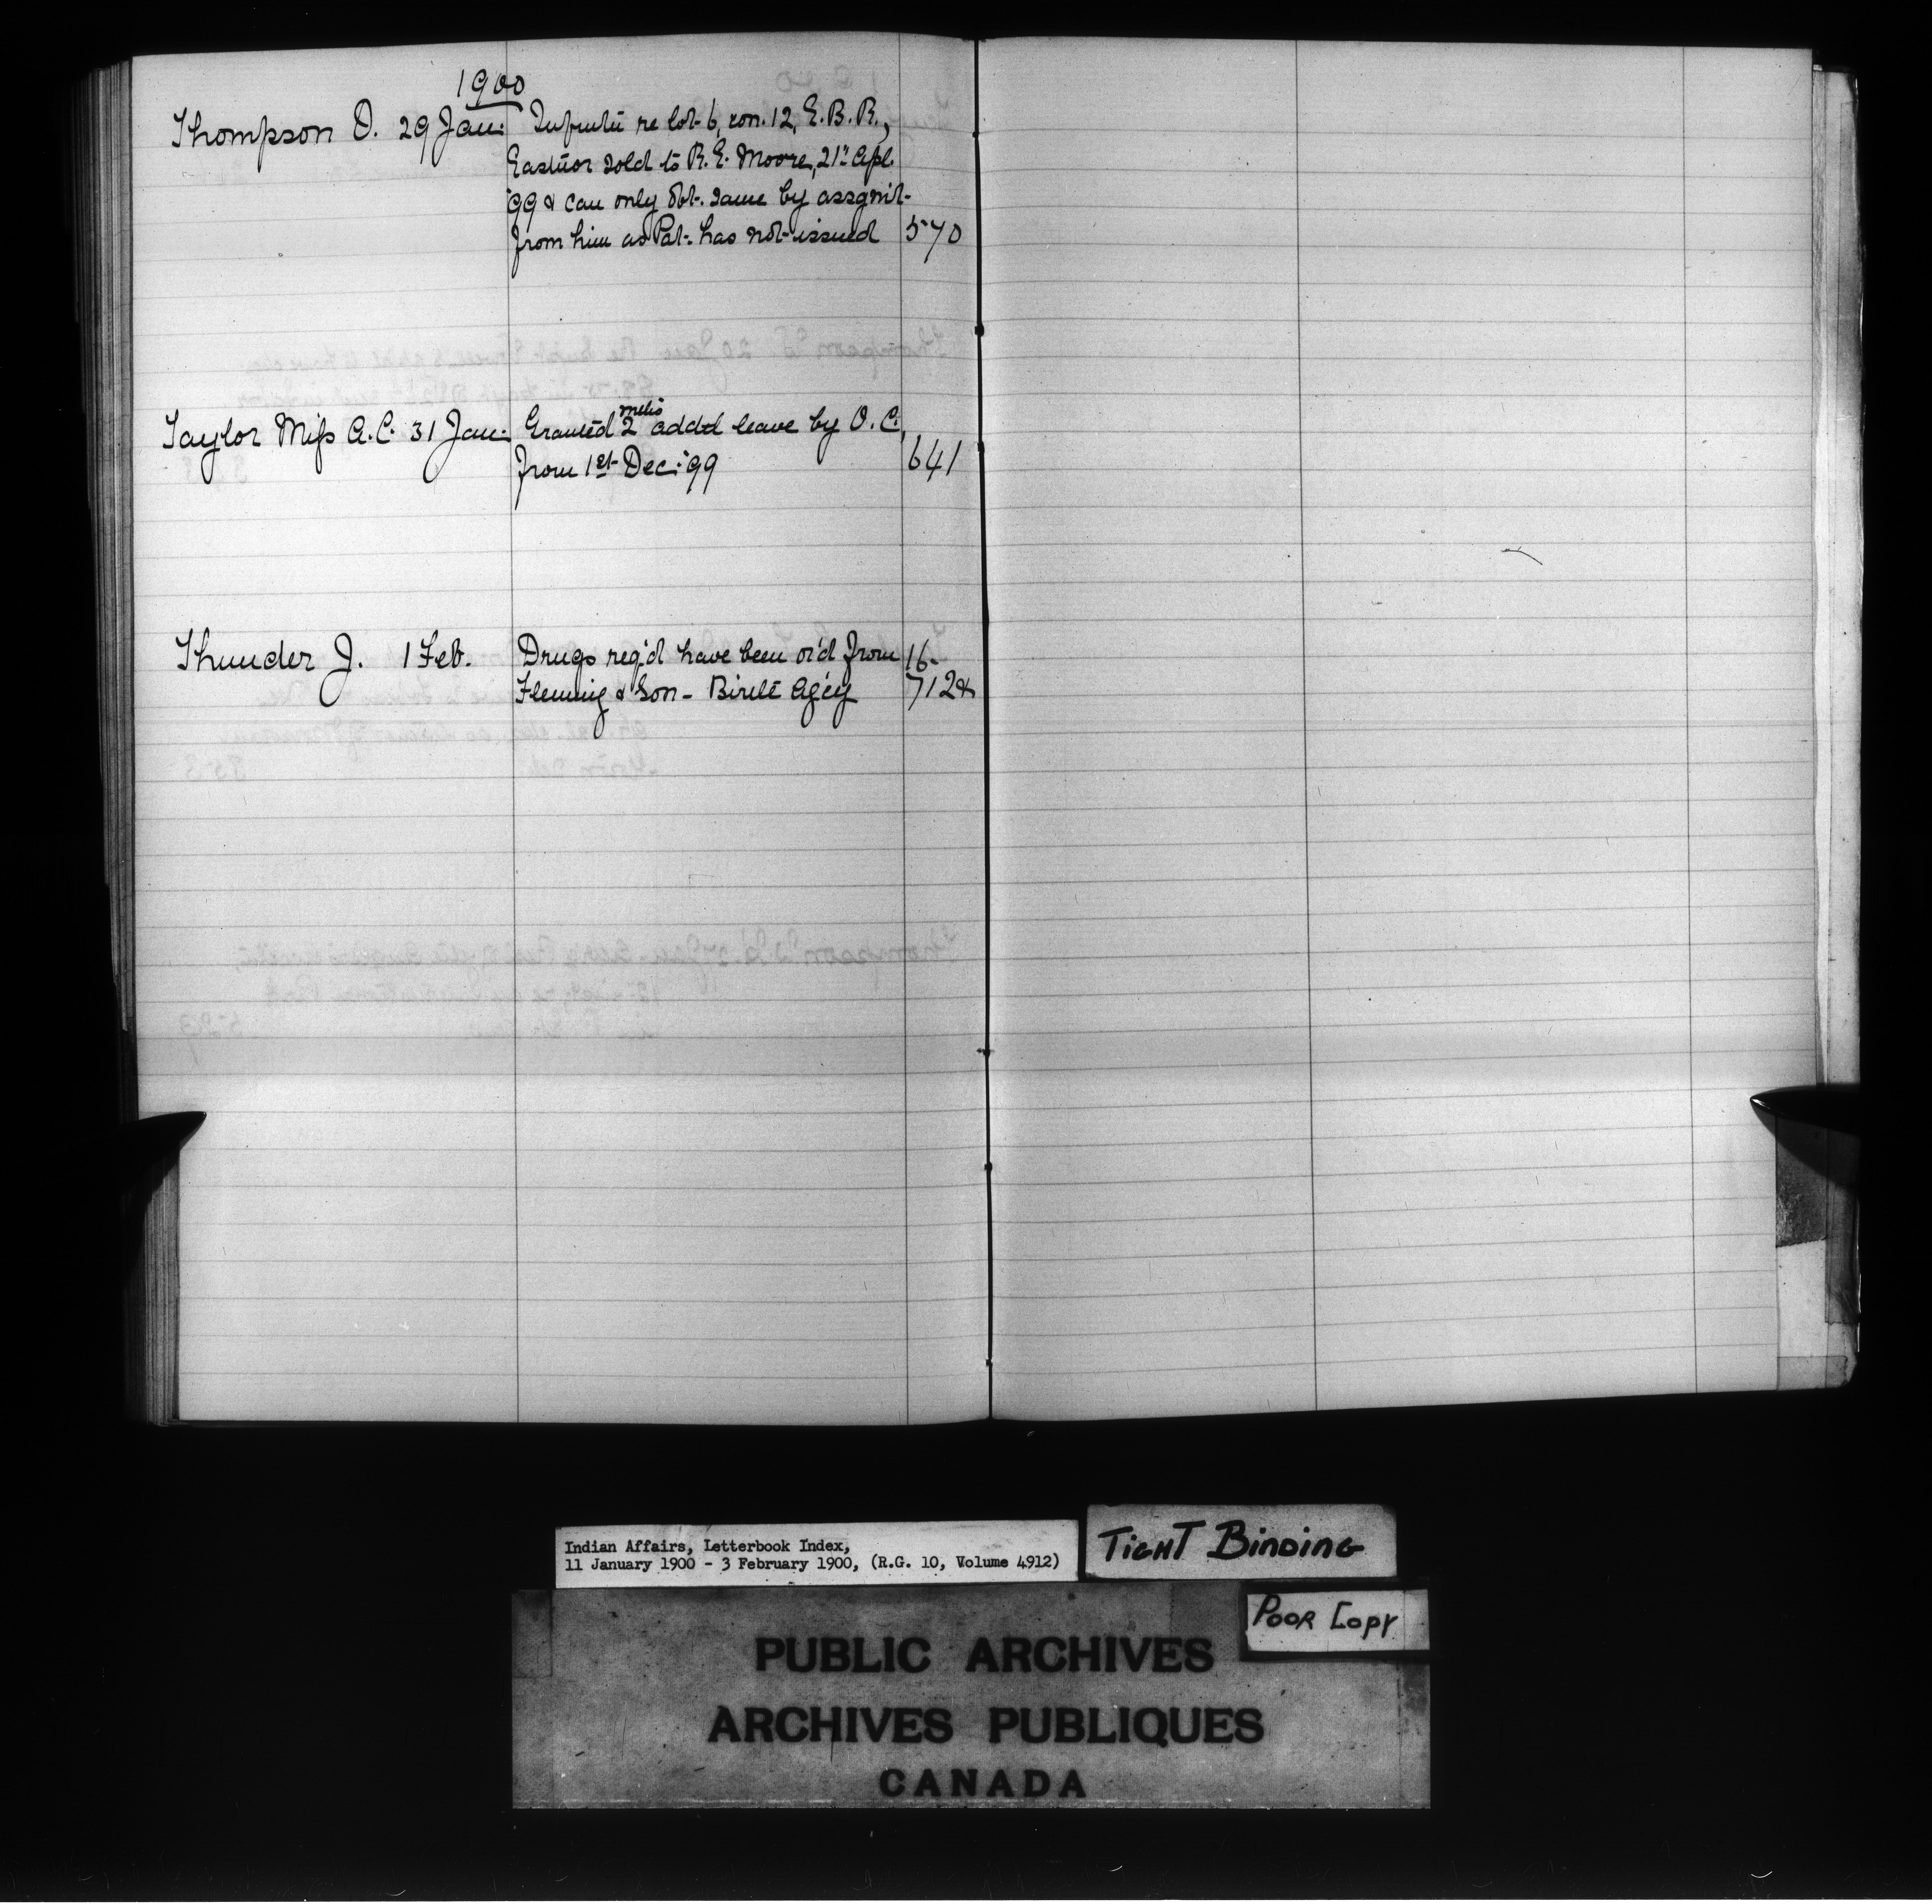 1900
Thompson D. 29 Jan: re lot 6, con. 12, E.B.R.,
Eastnor sold to R.E. Moore, 21st Apl.
'99 & can only obt. same by assgmt.
from him as Pat. has not issued 570
Taylor Miss A.C. 31 Jan: Granted 2 mths addtl leave by O.C.
from 1st Dec: '99 641
Thunder J. 1 Feb. Drugs req'd have been or'd from 16-
Fleming & Son - Birtle Ag'cy 712½
Indian Affairs, Letterbook Index,
11 January 1900 - 3 February 1900, (R.G. 10, Volume 4912)
TIGHT BINDING
POOR COPY
PUBLIC ARCHIVES
ARCHIVES PUBLIQUES
CANADA